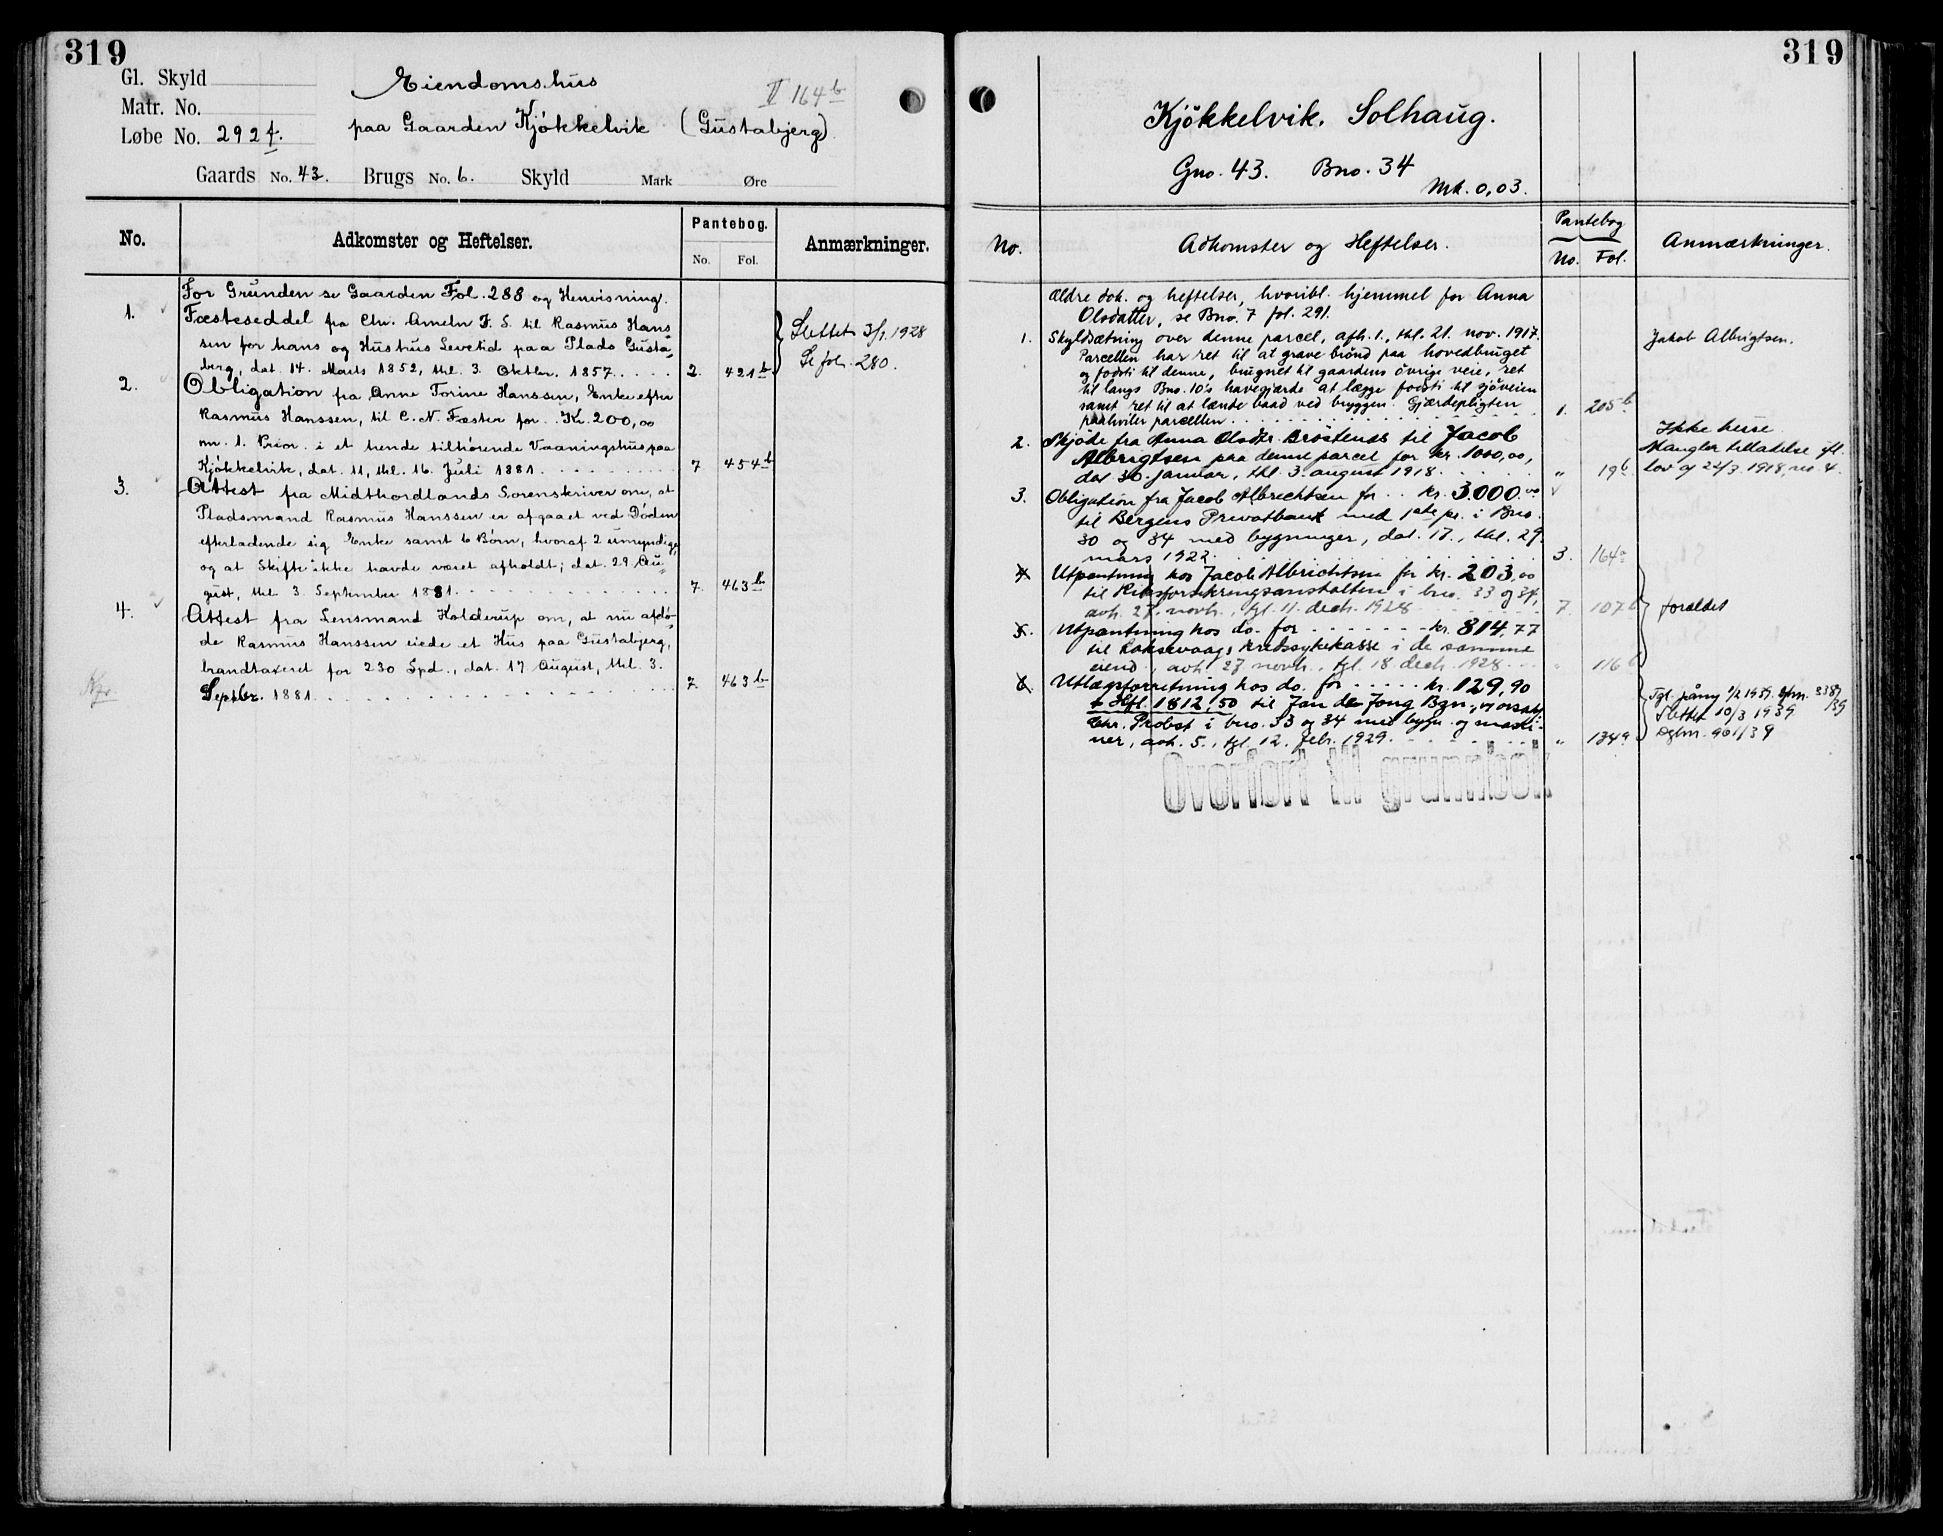 319
Gl. Skyld
Matr. No.
Løbe No. 292 f.
Eiendomshus
II 164 b
paa Gaarden Kjøkkelvik (Gustabjerg)
Gaards No. 43. Brugs No. 6. Skyld Mark Øre
No. Adkomster og Heftelser. Pantebog. No. Fol. Anmærkninger.
For Grunden se Gaarden Fol. 288 og Henvisning.
1. Fæsteseddel fra Chr. Ameln F. S. til Rasmus Hans-
sen for hans og Hustrus Levetid paa Plads Gusta-
berg, dat. 14. Marts 1852, thl. 3. Oktbr. 1857. . . . . 2. 421 b
Slettet 3/7 1928
Se fol. 280.
2. Obligation fra Anne Torine Hanssen, Enke efter
Rasmus Hanssen, til C. N. Faster for . . Kr. 200,00
m. 1. Prior. i et hende tilhørende Vaaningshus paa
Kjøkkelvik, dat. 11, thl. 16. Juli 1881. . . . . . . . . 7 454 b
3. Attest fra Midthordlands Sorenskriver om, at
Pladsmand Rasmus Hanssen er afgaaet ved Døden
efterladende sig Enke samt 6 Børn, hvoraf 2 umyndige,
og at Skifte ikke havde været afholdt; dat. 29. Au-
gust, thl. 3. September 1881. . . . . . . . . . . . . 7. 463 b
4. Attest fra Lensmand Holderup om, at nu afdø-
de Rasmus Hanssen eiede et Hus paa Gustabjerg,
brandtaxeret for 230 Spd., dat. 17 August, thl. 3.
Septbr. 1881. . . . . . . . . . . . . . . . . . . . 7. 463 b
319
Kjøkkelvik. Solhaug.
Gno. 43. Bno. 34
Mk. 0,03.
No. Adkomster og Heftelser. Pantebog No. Fol. Anmærkninger.
Ældre dok. og heftelser, hvoribl. hjemmel for Anna
Olsdatter, se Bno. 7 fol. 291.
1. Skyldsætning over denne parcel, afh. 1., thl. 21. nov. 1917. Jakob Albrigtsen.
Parcellen har ret til at grave brønd paa hovedbruget
og fodsti til denne, brugsret til gaardens øvrige veie, ret
til langs Bno. 10's havegjærde at lægge fodsti til sjøveien
samt ret til at lænde baad ved bryggen. Gjærdepligten
paahviler parcellen. . . . . . . . . . . . . 1. 205 b
2. Skjøde fra Anna Olsdtr. Brøstenes til Jacob
Albrigtsen paa denne parcel for kr. 1000,00,
dat 30. januar, thl. 3. august 1918. . . . . . " 19 b
Ikke huse.
Mangler tilladelse ifl.
lov af 24/3. 1918, no 4.
3. Obligation fra Jacob Albrechtsen for . . kr. 3000.00
til Bergens Privatbank med 1ste pr. i Bno.
30 og 34 med bygninger, dat. 17., thl. 29.
mars 1922. . . . . . . . . . . . . . . 3. 164 a
4. Utpantning hos Jacob Albrichtsen for kr. 203,00
til Riksforsikringsanstalten i bno. 33 og 34,
avh. 27. novb., tgl. 11. decb. 1928 . . . . . . 7. 107 b
5. Utpantning hos do. for . . . . . . . kr. 814,77
til Laksevaags kretssykekasse i de samme
eiend., avh. 27 novb., tgl. 18 decb. 1928 . . . " 116 b
forældet
6. Utlægsforretning hos do. for . . . . . kr. 129,90
+ Hfl. 1812,50 til Jan de Jong Bgn.
Chr. Probst i bno. 33 og 34 med bygn. og maski-
ner, avh. 5., tgl. 12. febr. 1929. . . . . . . . " 134 a
Slettet 10/3 1939
Dgbnr. 961/39
Overført til grunnbok